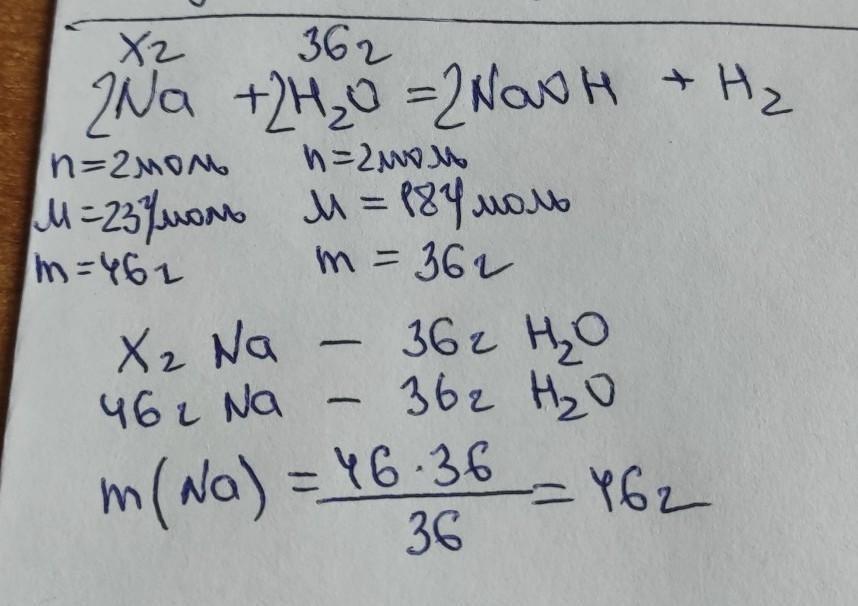 x г 36 г
2Na + 2H₂O = 2NaOH + H₂
n=2моль n=2моль
M=23г/моль M = 18г/моль
m=46г m = 36г
x г Na – 36г H₂O
46г Na – 36г H₂O
m(Na) = 46·36/36 = 46г